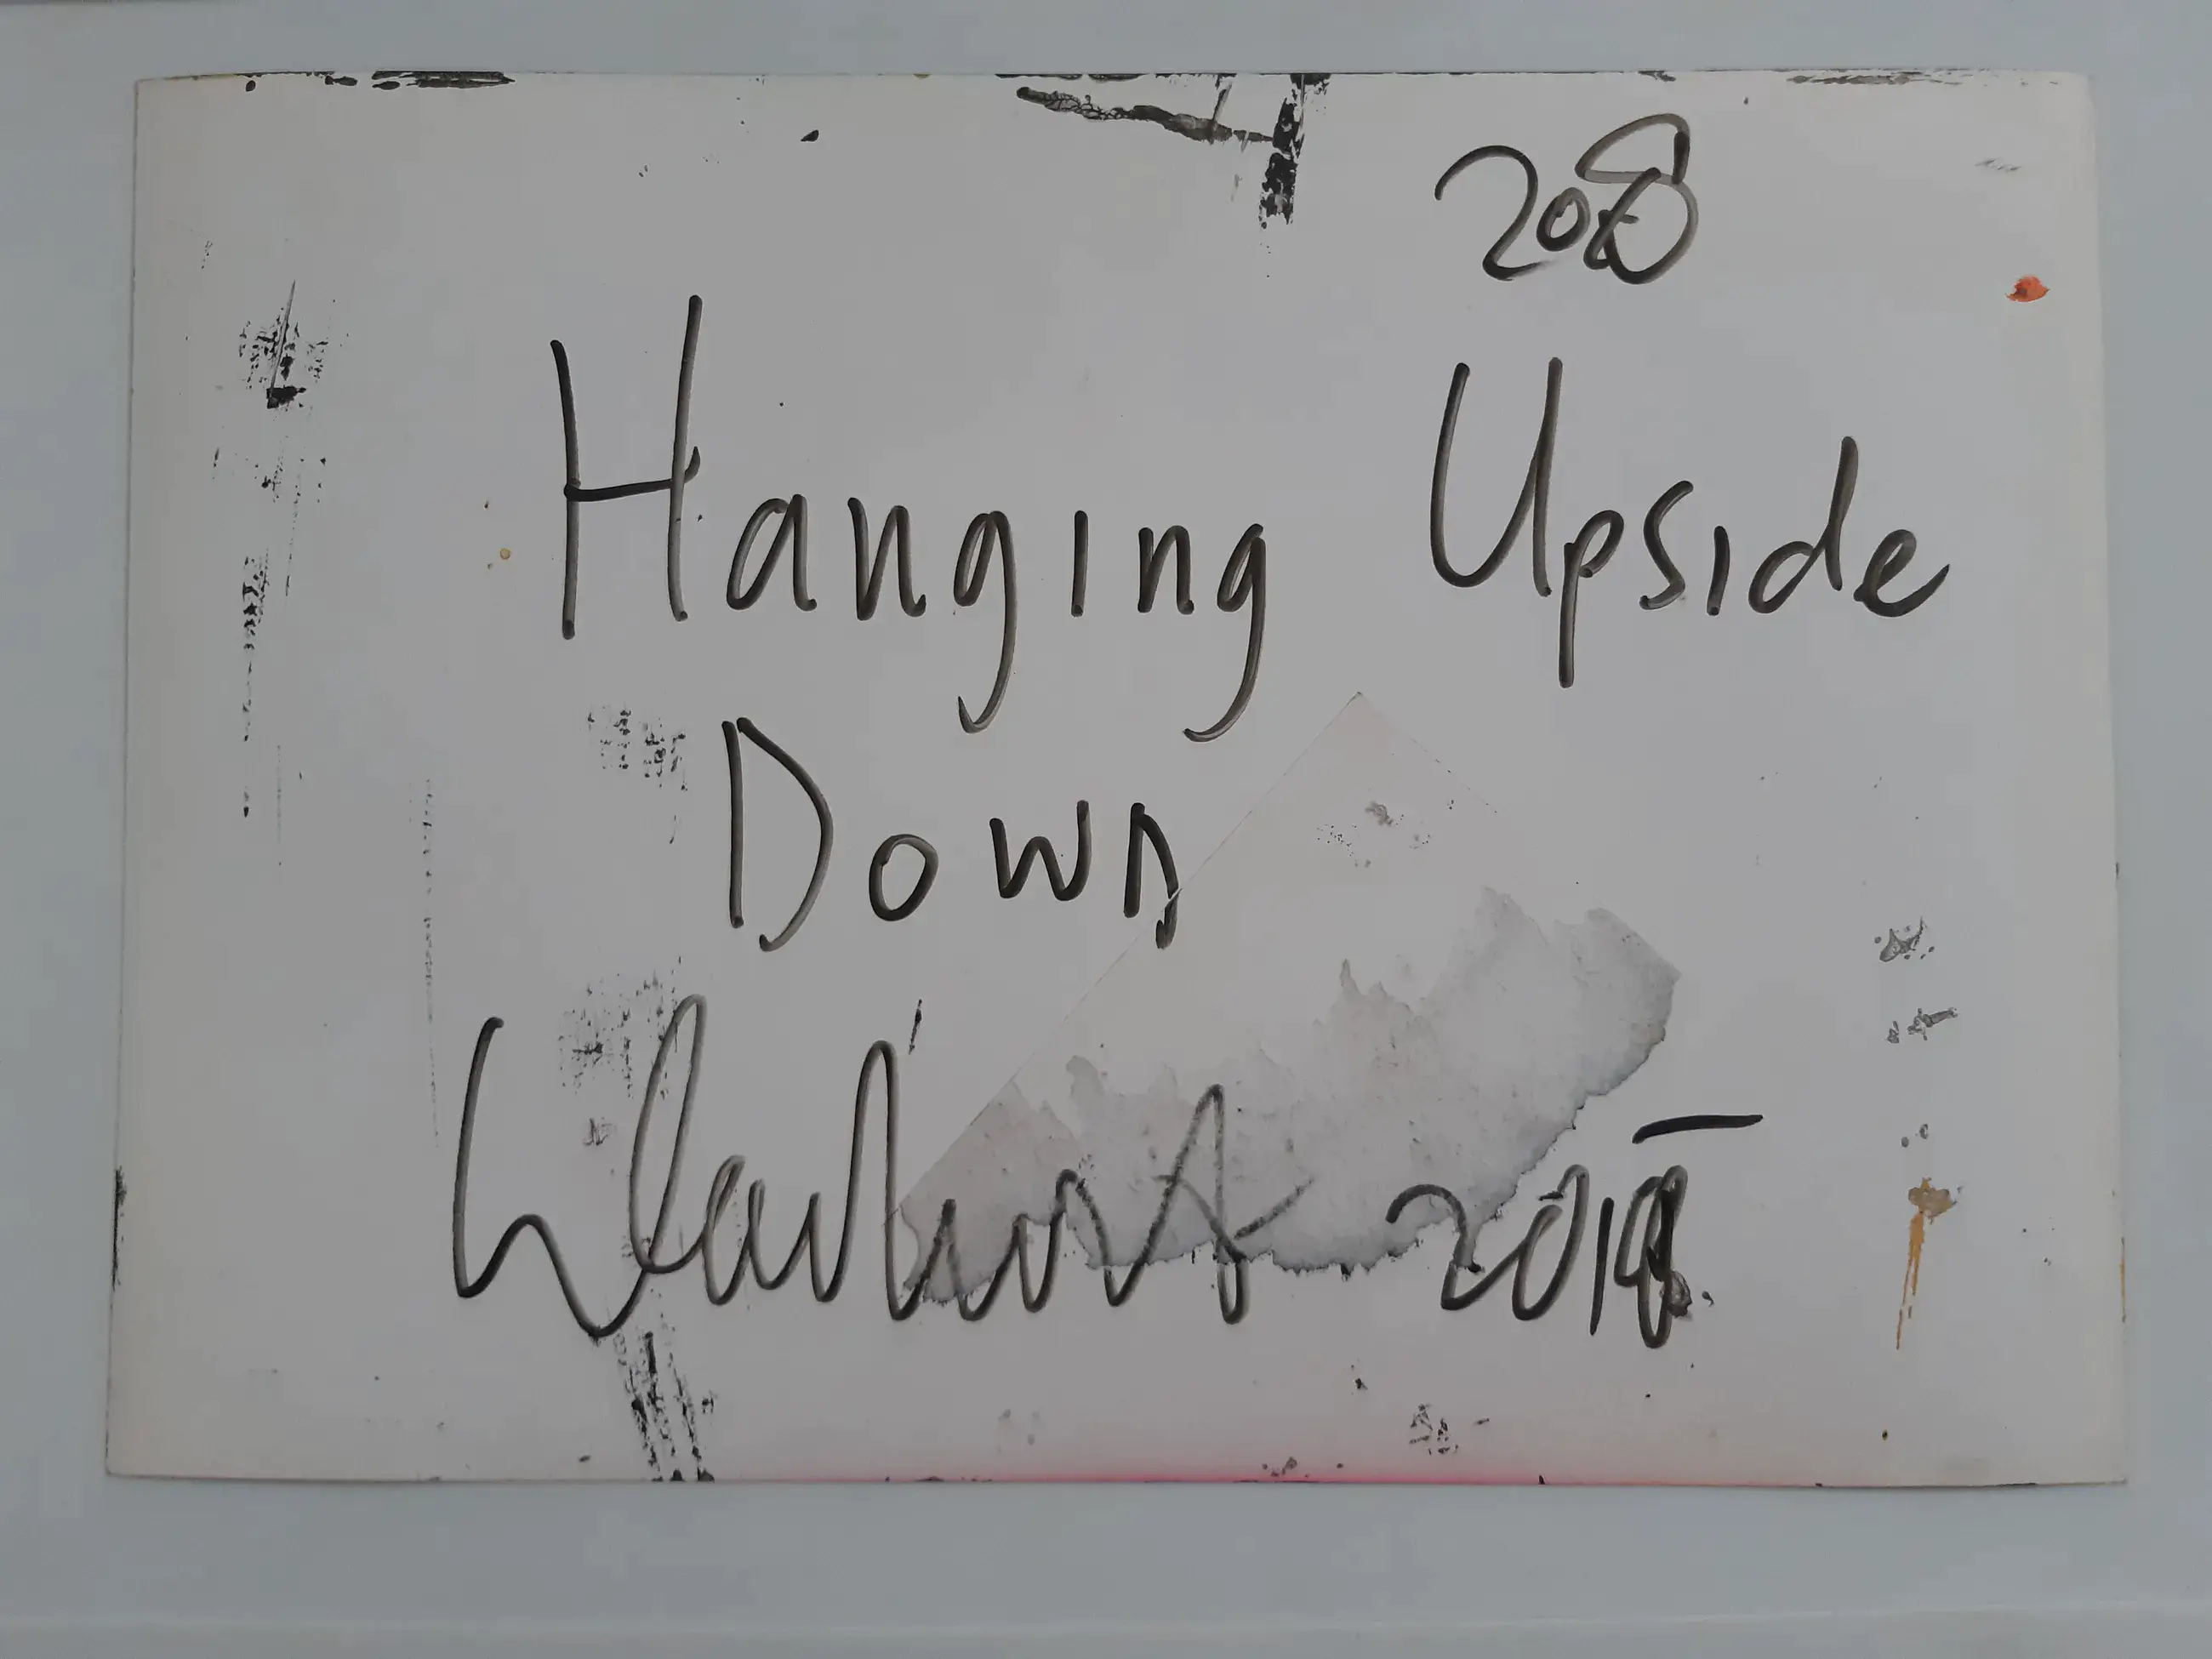 208
Hanging Upside
Down
2018